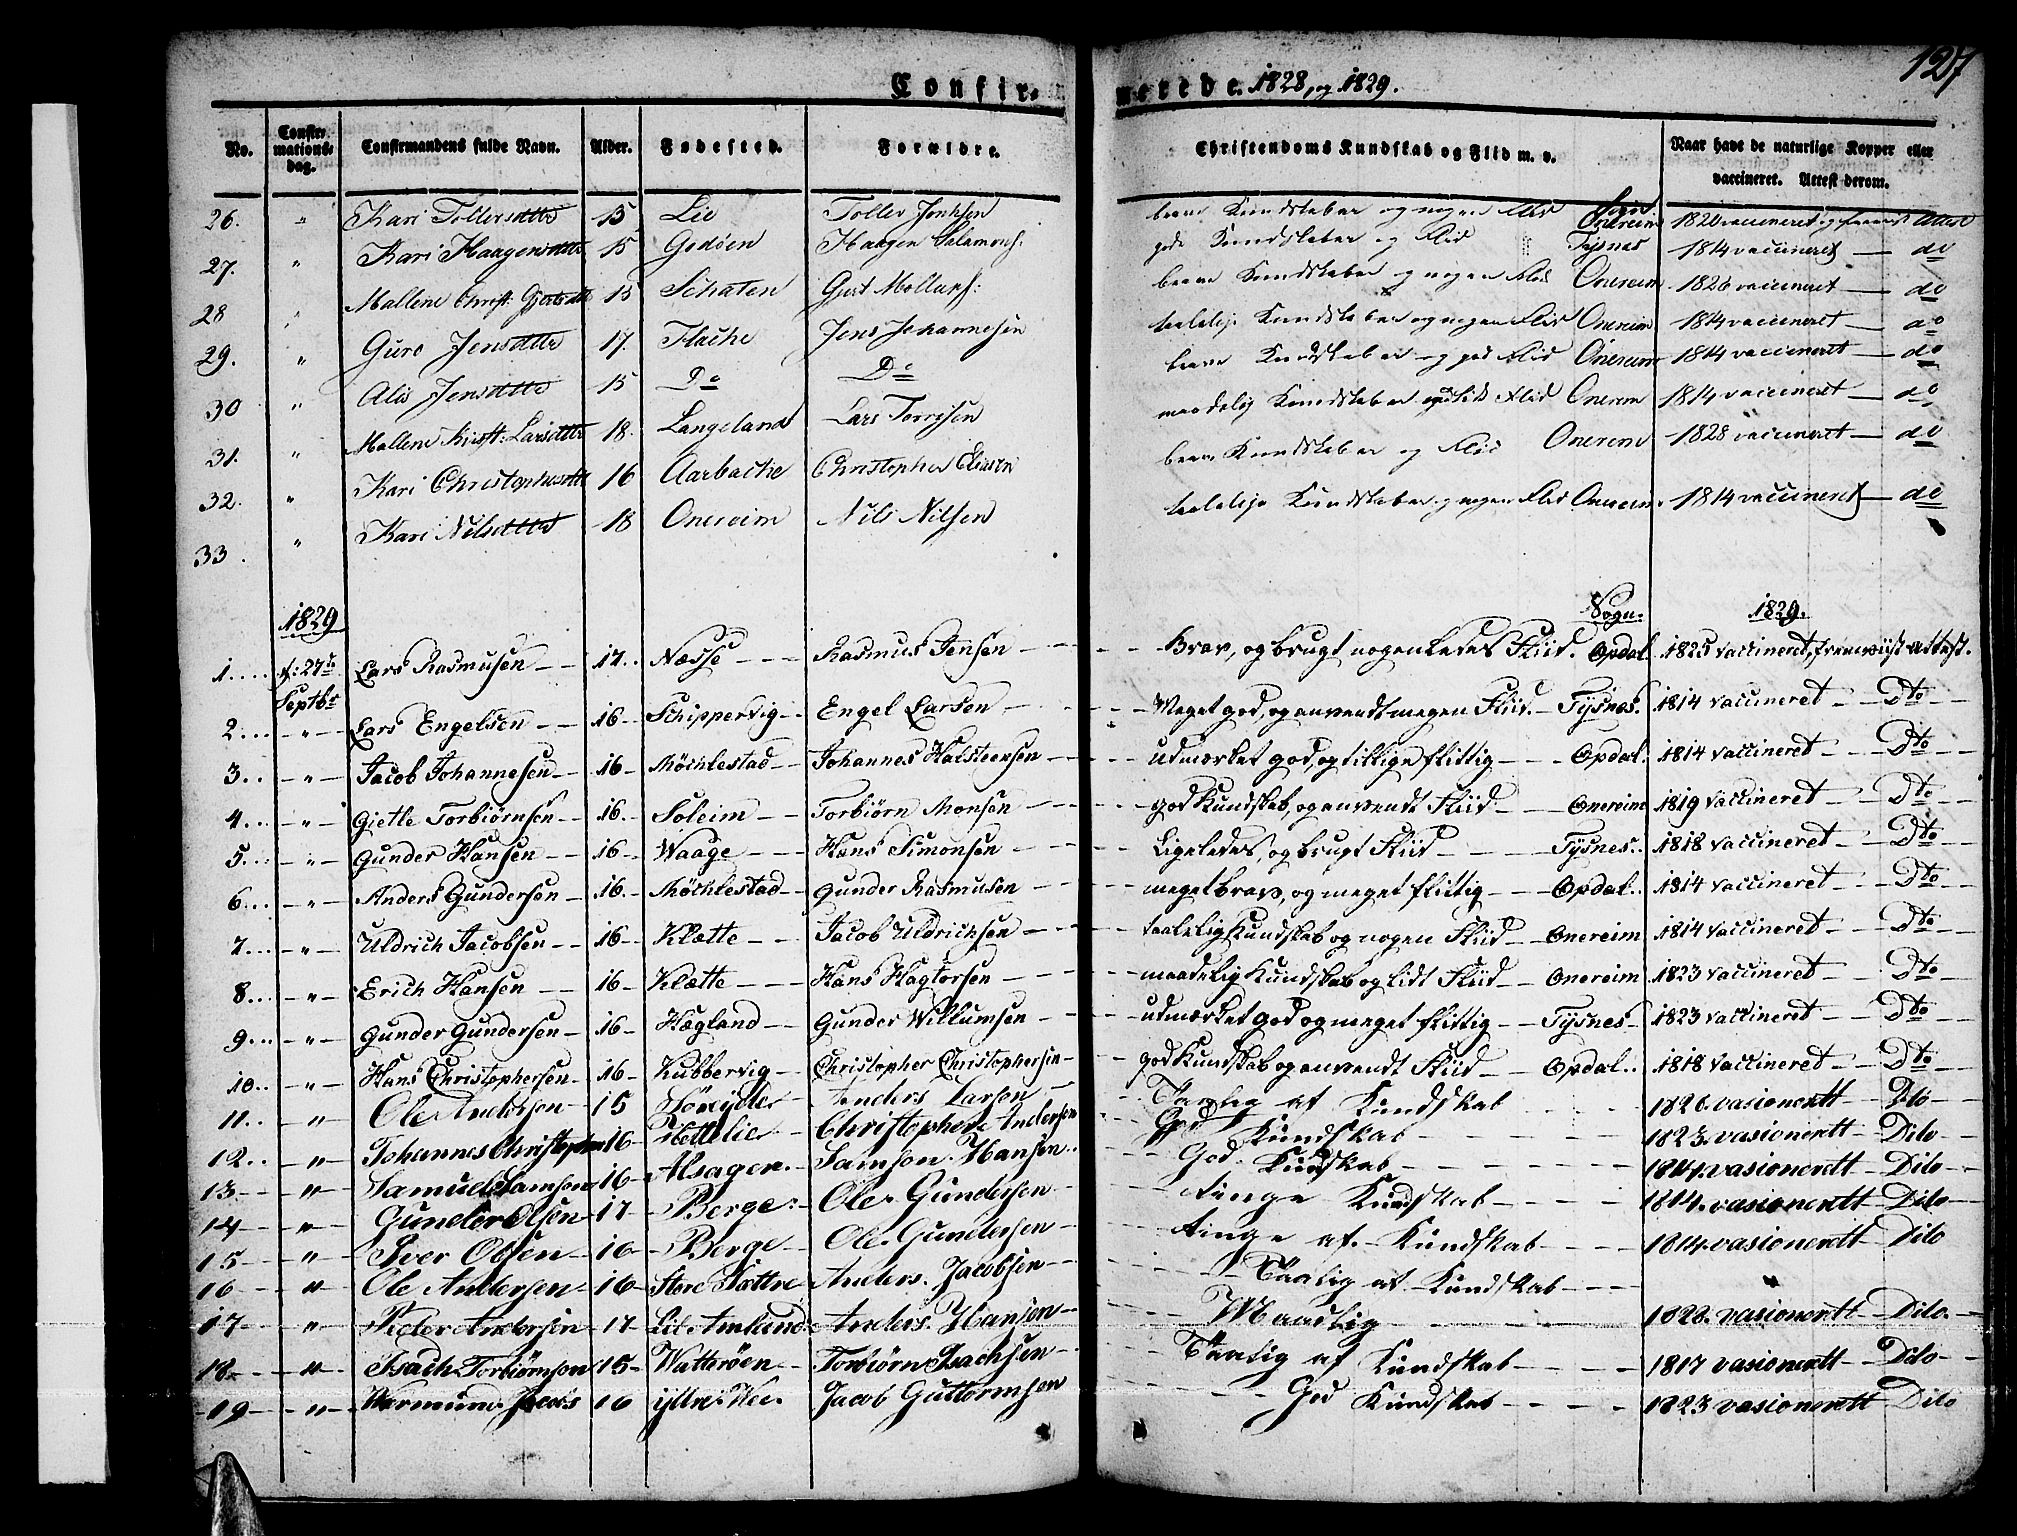 127
Confirmerede. 1828, og 1829.
No. Confirmations-dag. Confirmandens fulde Navn. Alder. Fødested. Forældre. Christendoms Kundskab og Flid m. v. Naar havt de naturlige Kopper eller vaccineret. Attest derom.
26. " Kari Tollersdtter 15 Lie Toller 1820 vaccineret og Attest
Sogn
27. " Kari Haagensdtter 15 Godøen Haagen Salamons: gode Kundskaber og Flid Tysnes 1814 vaccineret — do
28 " Mallene Christ: Gjertsdtter 15 Schaten Gjert Kundskaber og nogen Flid Onereim 1826 vaccineret — do
29. " Guro Jensdtter 17. Flache Jens Johannesen taalelige Kundskaber og nogen Flid Onereim 1814 vaccineret — do
30 " Alis Jensdtter 15 Do Do Kundskaber og god Flid Onereim 1814 vaccineret — do
31. " Mallene Kirst: Larsdtter 18. Langeland Lars Torrisen maadelig Kundskaber Flid Onereim 1814 vaccineret — do
32. " Kari Christophersdtter 16 Aarbache Christopher Kundskaber og Flid Onereim 1828 vaccineret — do
33. " Kari Nilsdtter 18 Onereim Nils Nilsen taalelige Kundskaber og nogen Flid Onereim. 1814 vaccineret — do
1829 Sogn. 1829.
1.... d: 27de Septbr Lars Rasmusen — 17.. Næsse - - - Rasmus Jensen - - - - Brav, og brugt nogenledes Fliid. Opdal. 1825 vaccineret, fremviist attest.
2... - " - Lars Engelsen - - 16 - Schippervig - Engel Larsen - - - - Meget god, og anvendt megen Fliid. - Tysnes. 1814 vaccineret - - Dto
3.. - " - Jacob Johannesen - 16 - Møchlestad - Johannes Halsteensen - - - - udmerket god, og tillige flittig - - - Opdal. 1814 vaccineret - - Dto
4... - " - Gietle Torbiørnsen - 16. - Soleim - - Torbiørn Monsen - - - - god Kundskab, og anvendt Fliid - - Onereim 1819 vaccineret - - Dto
5... - " - Gunder Hansen - - 16 - Waage - - - Hans Simonsen - - - - Ligeledes, og brugt Fliid - - - Tysnes.. 1818 vaccineret - - Dto
6... - " - Anders Gundersen - 16. - Møchlestad - Gunder Rasmusen - - - - meget brav, og meget flittig - - Opdal.. 1814 vaccineret - - Dto
7... - " - Uldrich Jacobsen - - 16 - Klætte - - Jacob Uldrichsen - - - - taalelig Kundskab og nogen Fliid - - Onereim 1814 vaccineret - - Dto
8... - " - Erich Hansen - - 16 - Klætte - - - Hans Hagtorsen - - - - maadelig Kundskab og lidt Fliid - - Onereim 1823 vaccineret - Dto
9... - " - Gunder Gundersen - 16 - Hægland - - Gunder Willumsen - - - - udmerket god og meget flittig - - Tysnes - 1823 vaccineret - - Dto
10.. - " - Hans Christophersen - 16 - Kubbervig - Christopher Christophersen - - - god Kundskab og anvendt Fliid - - Opdal.. 1818 vaccineret - - Dto
11.. - " - Ole Andersen - 15 Anders Larsen - - Taalig af Kundskab - - - 1826. vasionerett - Dito
12.. - " - Johannes Christophersen 16 - Christopher Andersen - - God Kundskab - - - 1823. vasionerett - Dito -
13 - - " - Samuel Samson - 16 - Alsager. - Samson Hansen.. - - - God Kundskab - - - 1814. vasionerett - Dito -
14 - - " - Gunder Olsen - 17 - Berge - Ole Gundersen - - - ringe Kundskab - - - 1814. vasionerett - Dito
15 - - " - Iver Olsen - 16 - Berge - Ole Gundersen - - - ringe af. Kundskab - - - 1814. vasionerett - Dito
16 - - " - Ole Andersen - 16 - Store Anders. Jacobsen - - - Taalig af Kundskab - - - "
17 - - " - Peder Andersen - 17 - Lil Amland Anders. Hansen - - - Maadlig - - - - 1822. vasionerett - Dito.
18. - - " - Isach Torbiørnson 15 - Watterøen - Torbiørn Isachsen - - - Taalig af Kundskab - - - - 1817 vasionerett - Dito -
19 - - " - Wermund. Jacobs 16 ijttre Wee. Jacob Guttormsen - - God Kundskab - - - - 1823 vasionerett - Dito